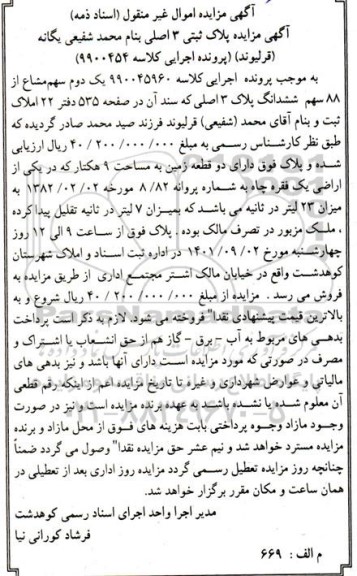 آگهی مزایده اموال غیر منقول (اسناد ذمه)
آگهی مزایده پلاک ثبتی ۳ اصلی بنام محمد شفیعی یگانه
(قرلیوند) (پرونده اجرایی کلاسه ۹۹۰۰۴۵۴)
به موجب پرونده اجرایی کلاسه ۹۹۰۰۴۵۹۶۰ یک دوم سهم مشاع از
۸۸ سهم ششدانگ پلاک ۳ اصلی که سند آن در صفحه ۵۳۵ دفتر ۲۲ املاک
ثبت و بنام آقای محمد (شفیعی) قرلیوند فرزند صید محمد صادر گردیده که
طبق نظر کارشناس رسمی به مبلغ ۴۰/۲۰۰/۰۰۰/۰۰۰ ریال ارزیابی
شده و پلاک فوق دارای دو قطعه زمین به مساحت ۹ هکتار که در یکی از
اراضی یک فقره چاه به شماره پروانه ۸/۸۲ مورخه ۱۳۸۲/۰۲/۰۲ به
میزان ۲۳ لیتر در ثانیه می باشد که بمیزان ۷ لیتر در ثانیه تقلیل پیدا کرده
، ملک مزبور در تصرف مالک بوده . پلاک فوق از ساعت ۹ الی ۱۲ روز
چهارشنبه مورخ ۱۴۰۱/۰۹/۰۲ در اداره ثبت اسناد و املاک شهرستان
کوهدشت واقع در خیابان مالک اشتر مجتمع اداری از طریق مزایده به
فروش می رسد . مزایده از مبلغ ۴۰/۲۰۰/۰۰۰/۰۰۰ ریال شروع و به
بالاترین قیمت پیشنهادی نقدا" فروخته می شود. لازم به ذکر است پرداخت
بدهی های مربوط به آب - برق - گاز هم از حق انشعاب یا اشتراک و
مصرف در صورتی که مورد مزایده است دارای آنها باشد و نیز بدهی های
مالیاتی و عوارض شهرداری و غیره تا تاریخ مزایده اعم از اینکه رقم قطعی
آن معلوم شده یا نشده باشد به عهده برنده مزایده است و نیز در صورت
وجود مازاد وجوه پرداختی بابت هزینه های فوق از محل مازاد و برنده
مزایده مسترد خواهد شد و نیم عشر حق مزایده نقدا" وصول می گردد ضمناً
چنانچه روز مزایده تعطیل رسمی گردد مزایده روز اداری بعد از تعطیلی در
همان ساعت و مکان مقرر برگزار خواهد شد.
مدیر اجرا واحد اجرای اسناد رسمی کوهدشت
فرشاد کورانی نیا
م الف : ۶۶۹